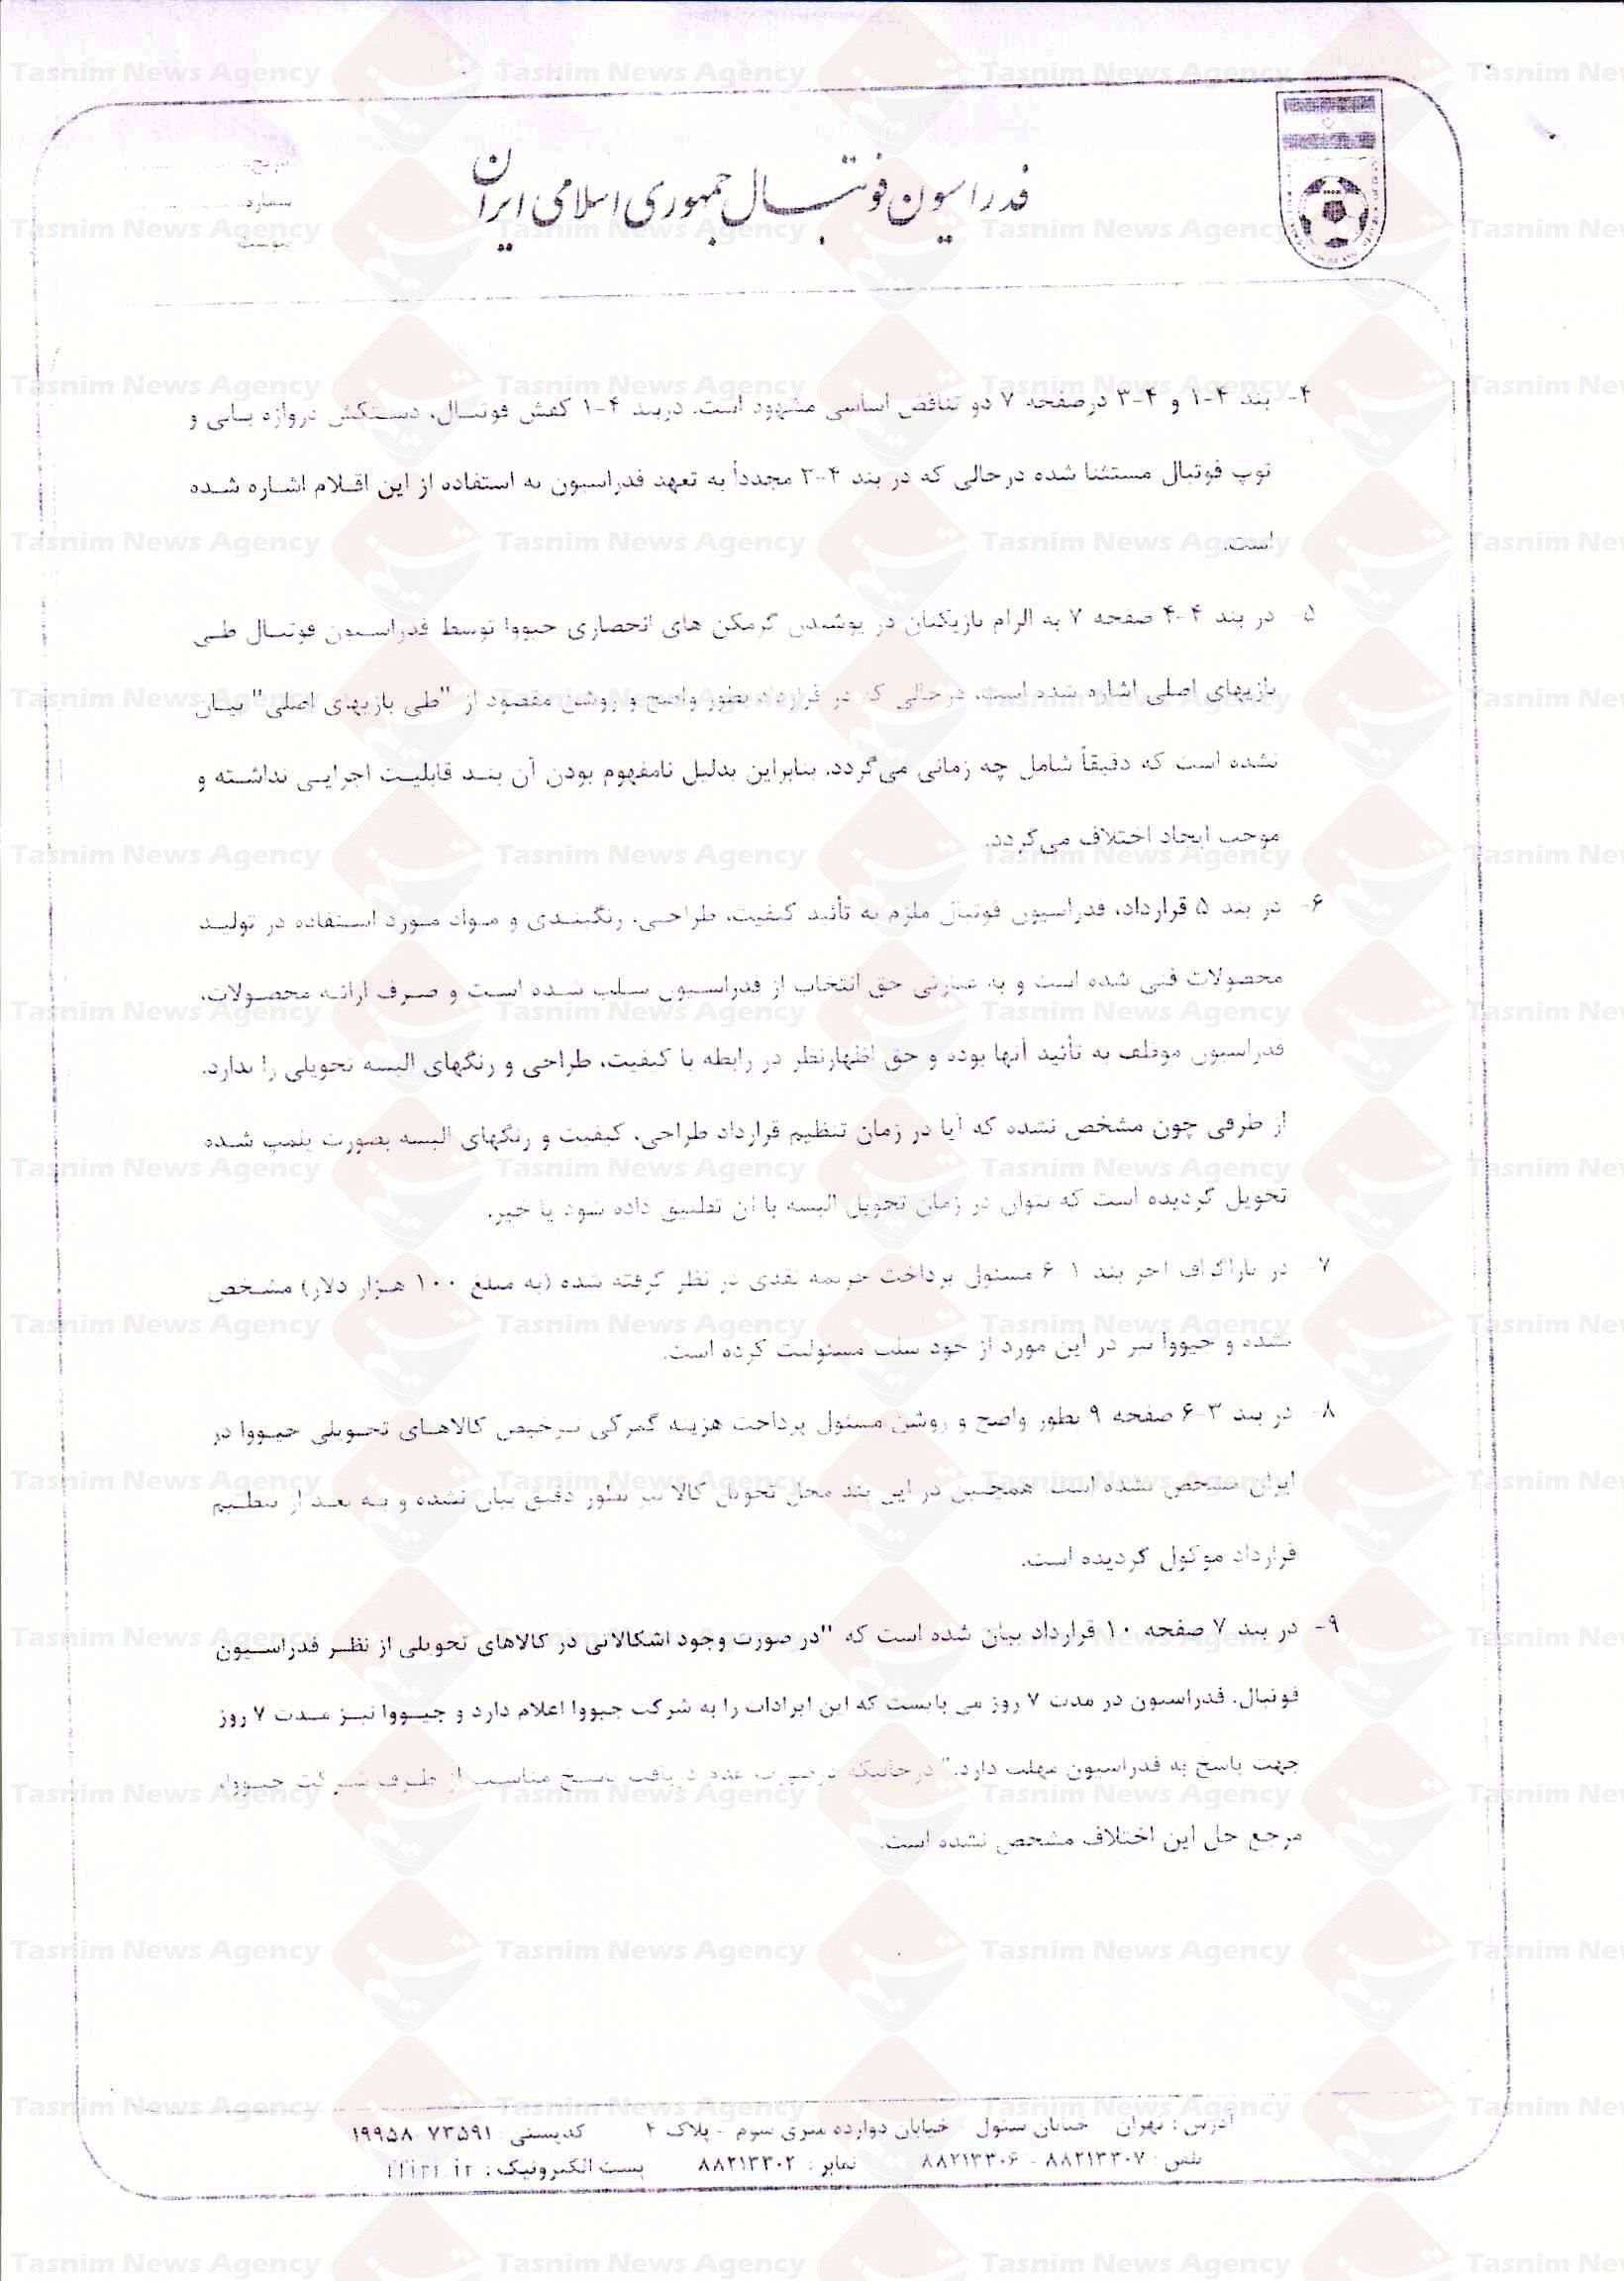 فدراسیون فوتبال جمهوری اسلامی ایران
۴- بند ۴-۱ و ۴-۳ درصفحه ۷ دو تناقض اساسی مشهود است. دربند ۴-۱ کفش فوتبال، دستکش دروازه بانی و
توپ فوتبال مستثنا شده درحالی که در بند ۴-۳ مجدداً به تعهد فدراسیون به استفاده از این اقلام اشاره شده
است.
۵- در بند ۴-۴ صفحه ۷ به الزام بازیکنان در پوشیدن گرمکن های انحصاری جیووا توسط فدراسیون فوتبال طی
بازیهای اصلی اشاره شده است، درحالی که در قرارداد بطور واضح و روشن مقصود از "طی بازیهای اصلی" بیان
نشده است که دقیقاً شامل چه زمانی می‌گردد. بنابراین بدلیل نامفهوم بودن آن بند قابلیت اجرایی نداشته و
موجب ایجاد اختلاف می‌گردد.
۶- در بند ۵ قرارداد، فدراسیون فوتبال ملزم به تأئید کیفیت، طراحی، رنگبندی و مواد مورد استفاده در تولید
محصولات فنی شده است و به عبارتی حق انتخاب از فدراسیون سلب شده است و صرف ارائه محصولات،
فدراسیون موظف به تأئید آنها بوده و حق اظهارنظر در رابطه با کیفیت، طراحی و رنگهای البسه تحویلی را ندارد.
از طرفی چون مشخص نشده که آیا در زمان تنظیم قرارداد طراحی، کیفیت و رنگهای البسه بصورت پلمپ شده
تحویل گردیده است که بتوان در زمان تحویل البسه با آن تطبیق داده شود یا خیر.
۷- در پاراگراف آخر بند ۱-۶ مسئول پرداخت جریمه نقدی در نظر گرفته شده (به مبلغ ۱۰۰ هزار دلار) مشخص
نشده و جیووا نیز در این مورد از خود سلب مسئولیت کرده است.
۸- در بند ۳-۶ صفحه ۹ بطور واضح و روشن مسئول پرداخت هزینه گمرکی ترخیص کالاهای تحویلی جیووا در
ایران مشخص نشده است. همچنین در این بند محل تحویل کالا نیز بطور دقیق بیان نشده و به بعد از تنظیم
قرارداد موکول گردیده است.
۹- در بند ۷ صفحه ۱۰ قرارداد بیان شده است که "در صورت وجود اشکالاتی در کالاهای تحویلی از نظر فدراسیون
فوتبال. فدراسیون در مدت ۷ روز می بایست که این ایرادات را به شرکت جیووا اعلام دارد و جیووا نیز مدت ۷ روز
جهت پاسخ به فدراسیون مهلت دارد." درحالیکه درصورت عدم دریافت پاسخ مناسب از طرف شرکت جیووا،
مرجع حل این اختلاف مشخص نشده است.
آدرس : تهران - خیابان سئول - خیابان دوازده متری سوم - پلاک ۴ کدپستی : ۷۳۵۹۱-۱۹۹۵۸
تلفن : ۸۸۲۱۳۳۰۷ - ۸۸۲۱۳۳۰۶ نمابر : ۸۸۲۱۳۳۰۲ پست الکترونیک :
Tasnim News Agency